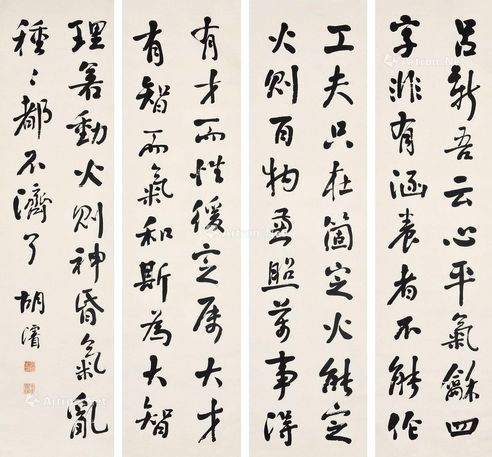 呂新吾云心平氣龢四
字非有涵養者不能作
工夫只在箇定火能定
火則百物兼照萬事得
有才而性緩定屬大才
有智而氣和斯為大智
理著動火則神昏氣亂
種〻都不濟了
胡濬